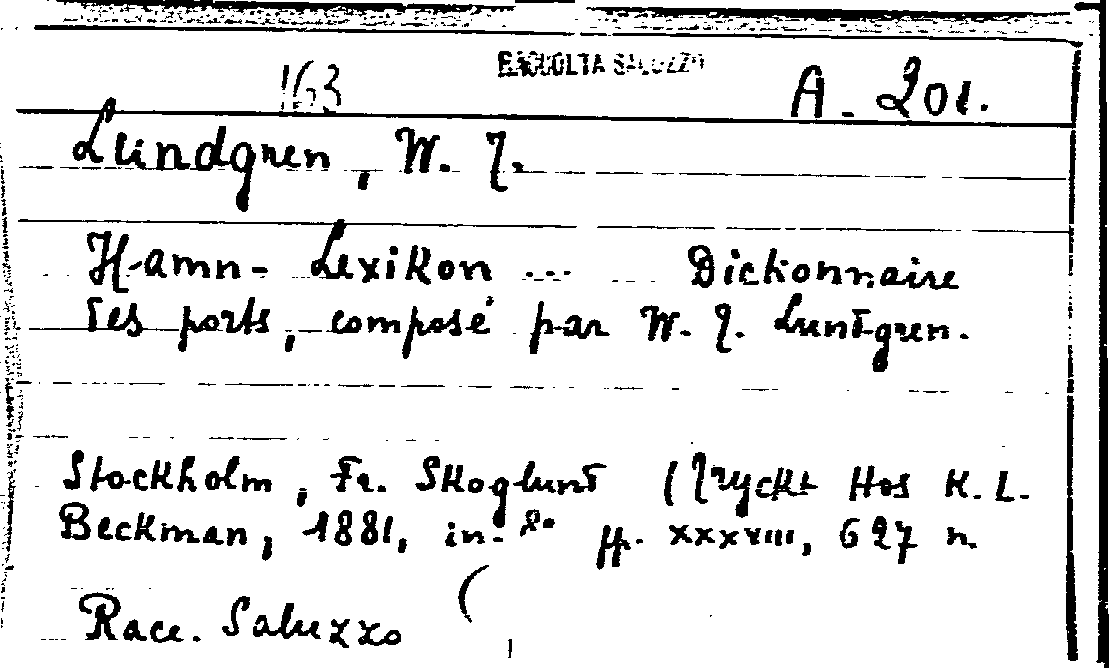 RACCOLTA SALUZZO
163 A. 201.
Lundgren, W. J.
Hamn-Lexikon ... Dictionnaire
des ports, composé par W. J. Lundgren.
Stockholm, Fr. Skoglund (Tryckt Hos K. L.
Beckman, 1881, in-8° pp. XXXVIII, 627 n.
Racc. Saluzzo (